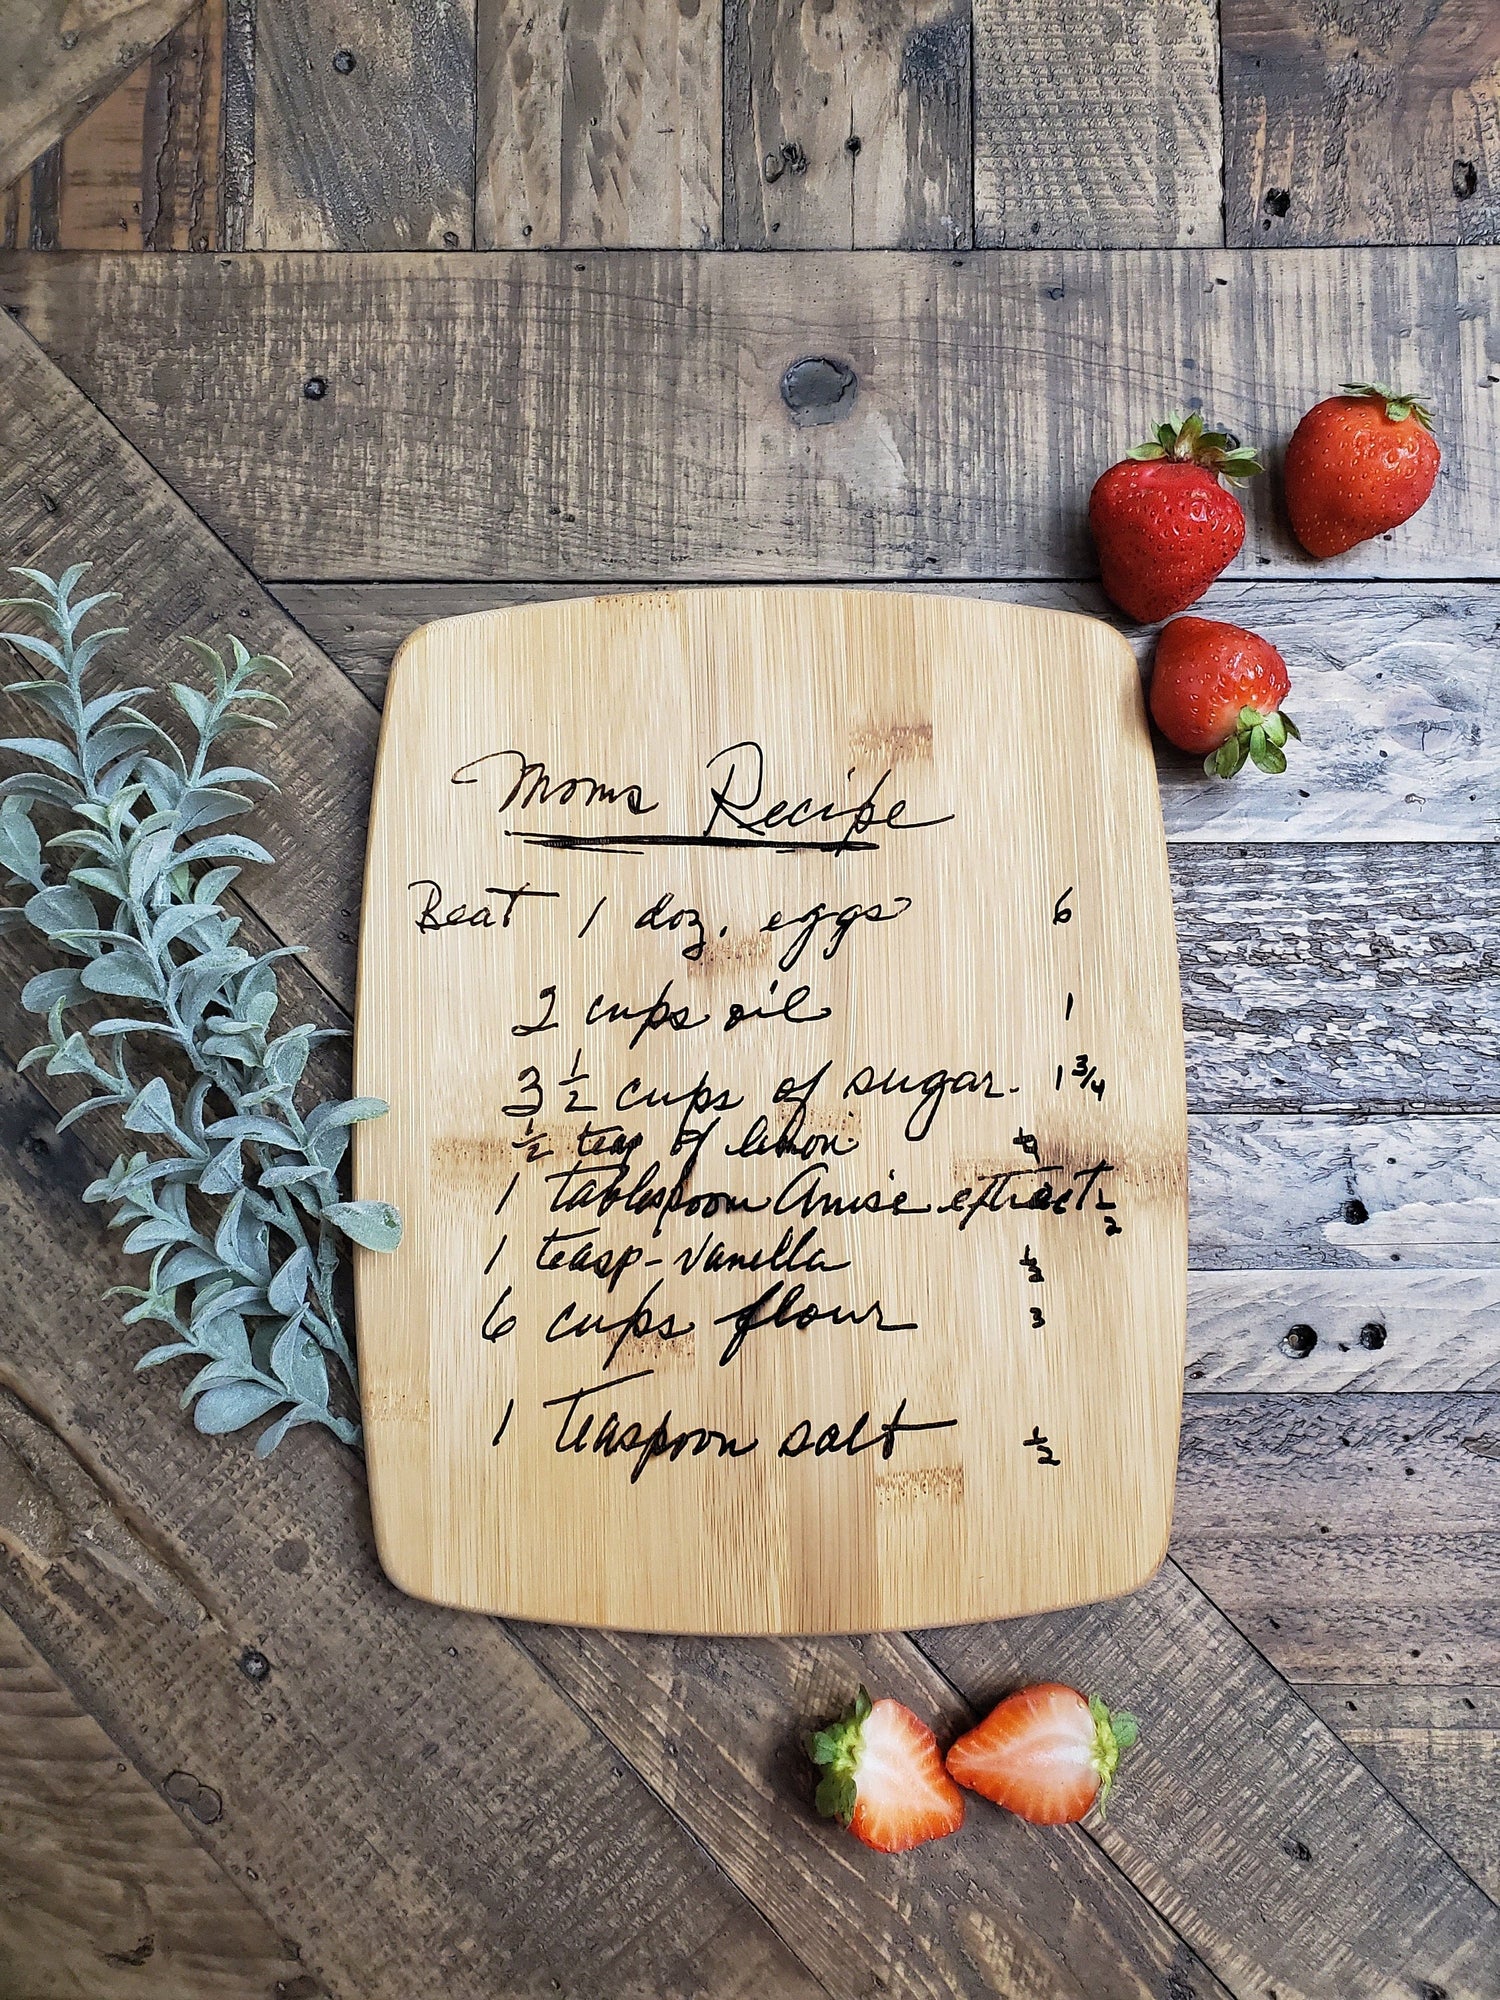 Moms Recipe
Beat 1 doz. eggs 6
2 cups oil 1
3 1/2 cups of sugar. 1 3/4
1/2 teasp of lemon 1/4
1 tablespoon Anise extract 1/2
1 teasp - vanilla 1/2
6 cups flour 3
1 Teaspoon salt 1/2